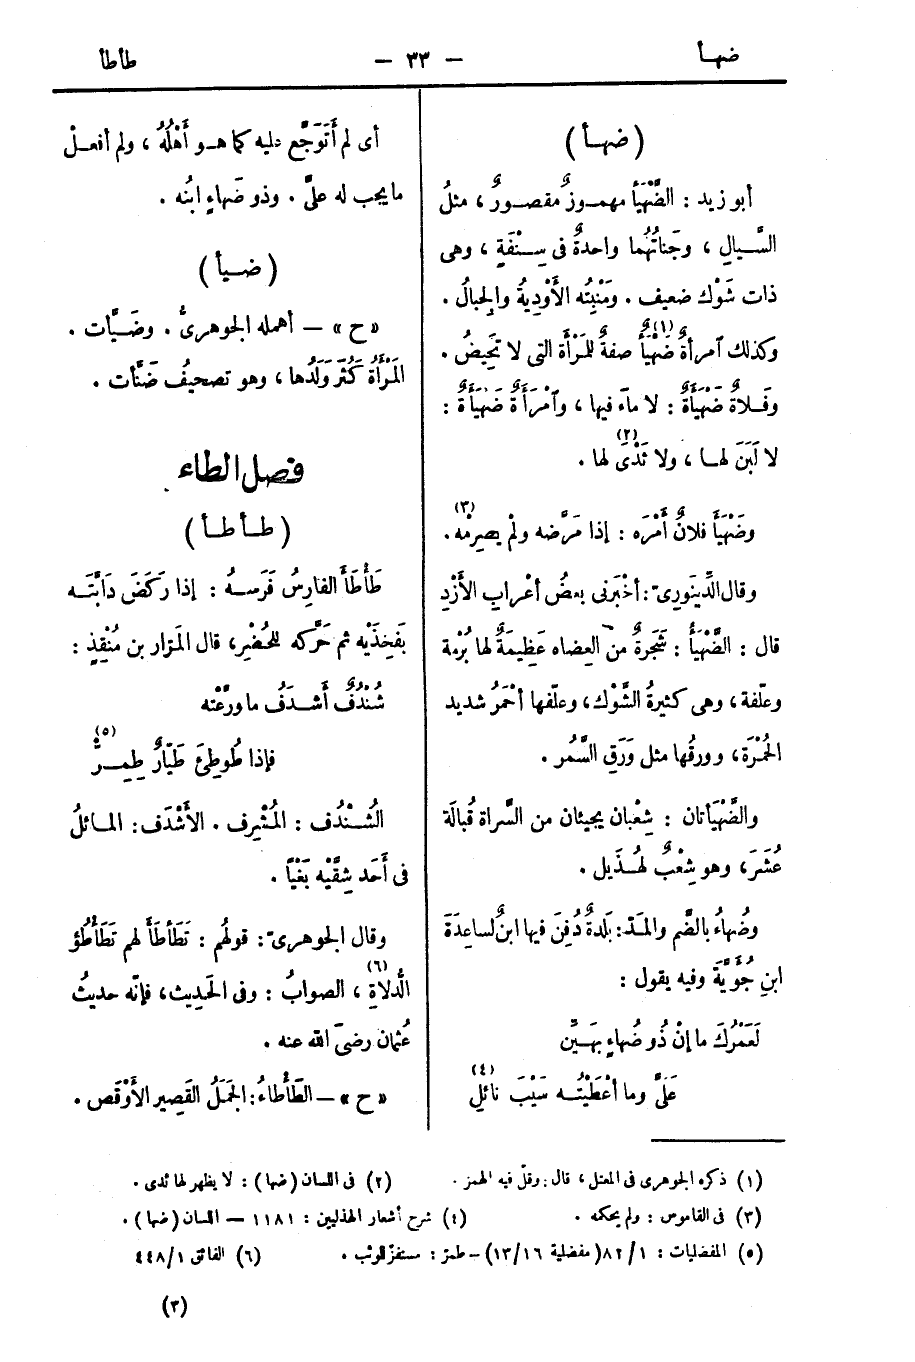 ضهأ
— ٣٣ —
طأطأ
(ضهأ)
أبو زيد : الضَّهْيَأُ مهموزٌ مقصورٌ ، مثلُ
السَّيالِ ، وجَناتُهُما واحدةٌ فى سِنْفَةٍ ، وهى
ذات شَوْك ضعيف . ومَنْبِتُه الأَوْدِيةُ والجبالُ .
وكذلك ٱمرأةٌ ضَهْيَأٌ (١) صفةٌ للمَرْأة التى لا تَحِيضُ .
وفَلاةٌ ضَهْيَأَةٌ : لا مآءَ فيها ، وٱمْرَأَةٌ ضَهْيَأَةٌ :
لا لَبَنَ لها ، ولا ثَدْىَ (٢) لها .
وضَهْيَأَ فلانٌ أَمْرَه : إذا مَرَّضه ولمْ يصرِمْه (٣) .
وقال الدِّينَورِىّ : أخْبَرنى بعضُ أعْرابِ الأَزْدِ
قال : الضَّهْيَأُ : شَجَرةٌ من العضاه عَظِيمَةٌ لها بُرْمة
وعلّفة ، وهى كثيرةُ الشَّوْك ، وعلّفها أحْمَرُ شديد
الحُمْرَة ، وورقُها مثل وَرَقِ السَّمُر .
والضَّهْيَأتان : شِعْبان يجيئان من السَّراة قُبالَة
عُشَرَ ، وهو شِعْبٌ لهُذَيل .
وضُهاءُ بالضَّم والمَدّ : بَلدةٌ دُفِنَ فيها ابنٌ لساعِدَةَ
ابنِ جُؤَيَّةَ وفيه يقول :
لَعَمْرُكَ ما إنْ ذُو ضُهاءٍ بهَيِّن
عَلَىَّ وما أعْطَيْتُه سَيْبَ نائلِ (٤)
أى لم أتَوَجَّع عليه كما هو أَهْلُهُ ، ولم أفعلْ
ما يجب له علىَّ . وذو ضُهاءٍ ابنُه .
(ضيأ)
«ح» — أهمله الجوهرىُّ . وضَيَّأت
المَرْأةُ كَثُرَ وَلَدُها ، وهو تصحيفُ ضَنَأت .
فصل الطاء
(طأطأ)
طَأْطَأَ الفارِسُ فَرَسهُ : إذا رَكَضَ دَابَّتَه
بفَخِذَيْه ثم حَرَّكه للحُضْرِ ، قال المَرّار بن مُنْقِذٍ :
شُنْدُفٌ أَشْدَفُ ما ورَّعْتَه
فإذا طُوطِئَ طَيّارٌ طِمِرّ (٥)
الشُّنْدُف : المُشْرِف . الأَشْدَف : المائلُ
فى أَحَد شِقَّيْه بَغْيًا .
وقال الجوهرىّ : قولُهم : تَطَأطَأَ لهم تَطَأْطُؤَ
الدُّلاةِ (٦) ، الصوابُ : وفى الحَدِيث ، فإنّه حديثُ
عُثمان رضىَ الله عنه .
«ح» — الطَّأْطاءُ : الجَمَلُ القَصِير الأَوْقَص .
(١) ذكره الجوهرى فى المعتل ، قال : وقلّ فيه الهمز .
(٢) فى اللسان (ضها) : لا يظهر لها ثدى .
(٣) فى القاموس : ولم يحكمه .
(٤) شرح أشعار الهذليين : ١١٨١ — اللسان (ضها) .
(٥) المفضليات : ٨٢/١ (مفضلية ١٣/١٦) — طمرّ : مستفز للوثب .
(٦) الفائق ٤٤٨/١
(٣)